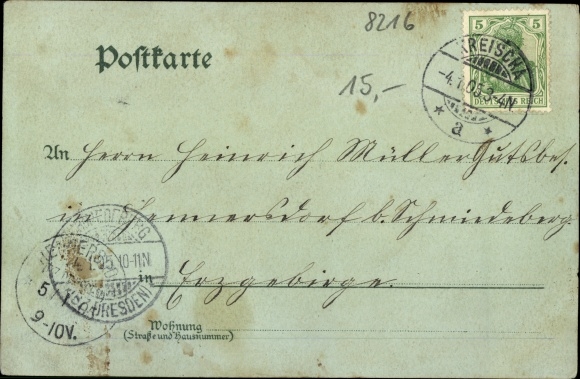 8216
Postkarte
15,-
5 5
DEUTSCHES REICH
KREISCHA
-4.1.05.3-4N
* a *
An Herrn Heinrich Müller Gutsbes.
in Hennersdorf b. Schmiedeberg
in Erzgebirge.
Wohnung
(Straße und Hausnummer)
10-11N
(BZ. DRESDEN)
5
9-10V.